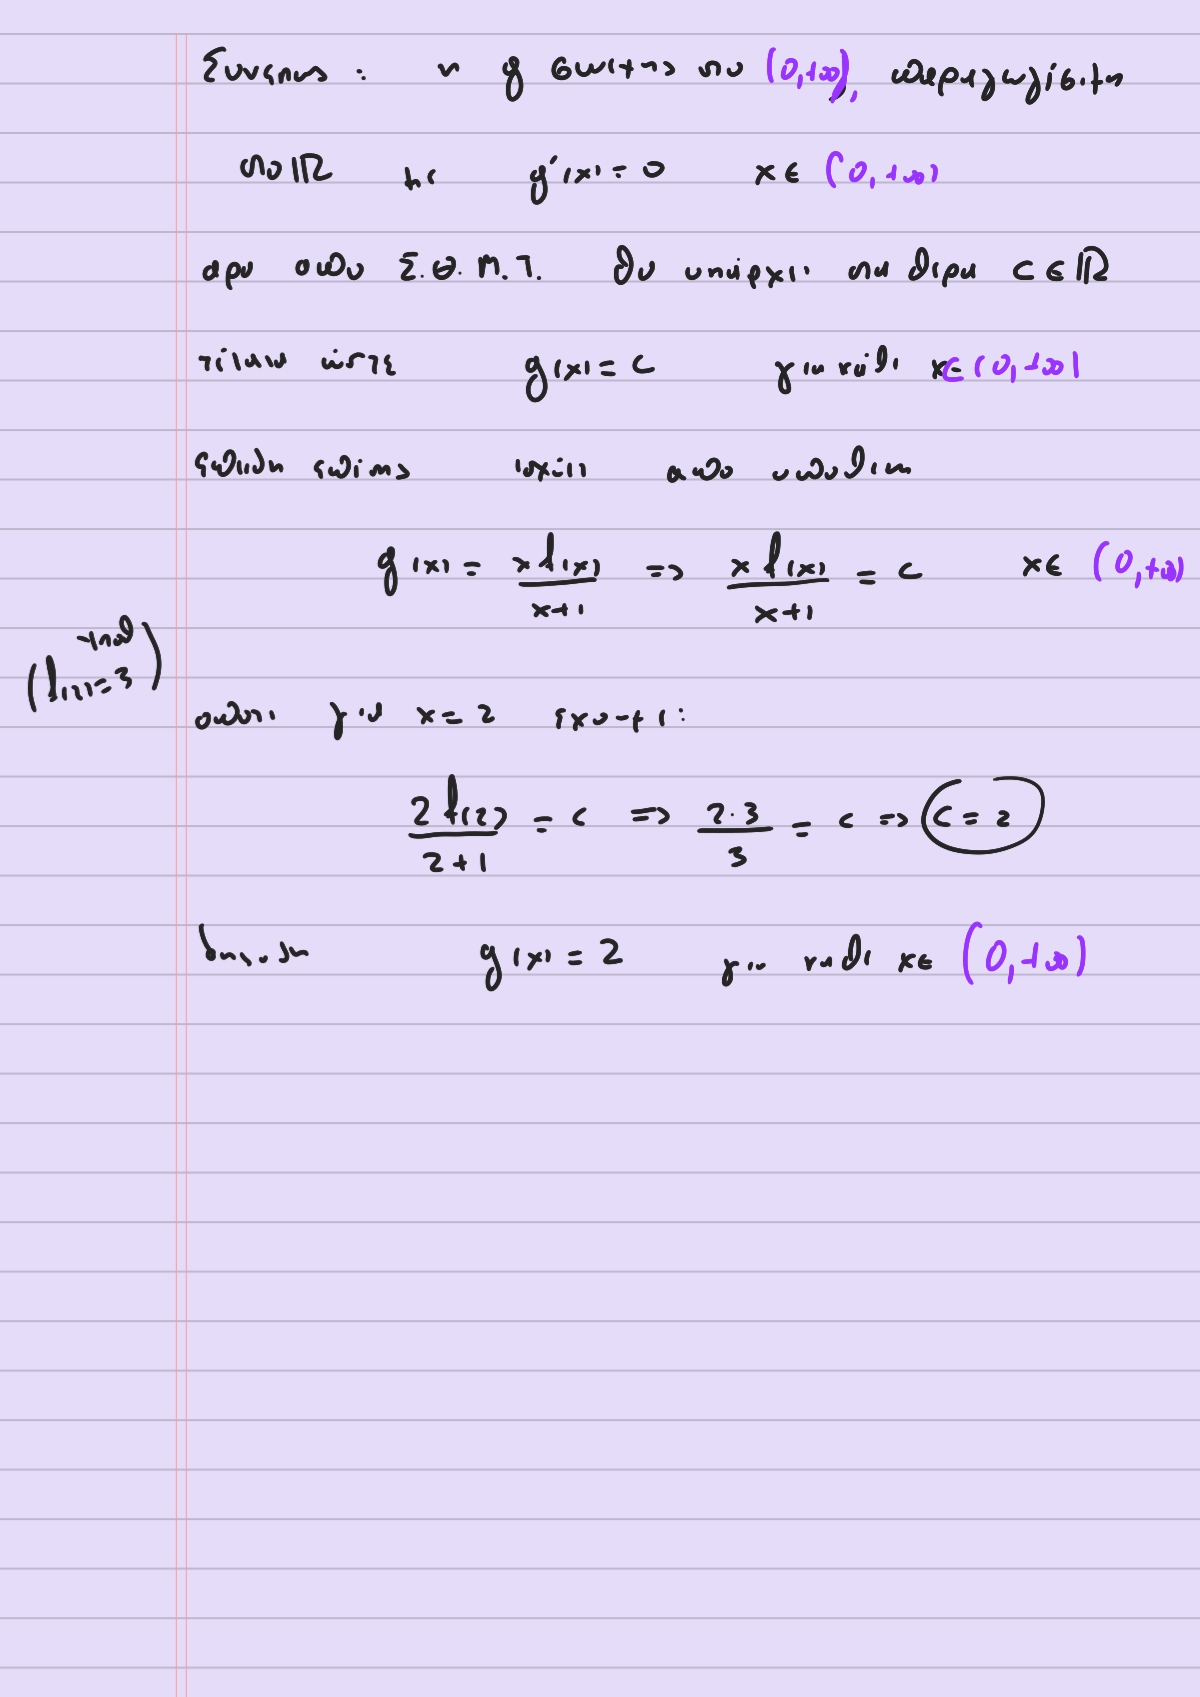 Συνεπως : η g συνεχης στο (0,+∞), παραγωγίσιμη
στο ℝ με g'(x) = 0 x ∈ (0,+∞)
αρα απο Σ.Θ.Μ.Τ. θα υπάρχει σταθερα c ∈ ℝ
τέτοια ώστε g(x) = c για κάθε x ∈ (0,+∞)
επειδη επίσης ισχύει απο υποθεση
g(x) = xf(x)/x+1 => xf(x)/x+1 = c x ∈ (0,+∞)
(f(2)=3)
οποτε για x = 2 εχουμε:
2f(2)/2+1 = c => 2·3/3 = c => c = 2
δηλαδη g(x) = 2 για καθε x ∈ (0,+∞)